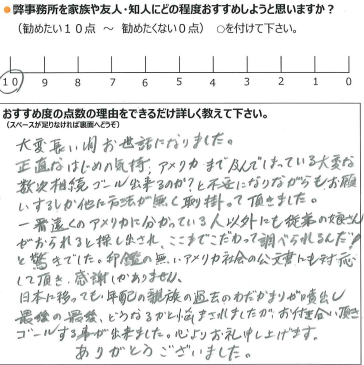 ●弊事務所を家族や友人・知人にどの程度おすすめしようと思いますか？
（勧めたい１０点　～　勧めたくない０点）　○を付けて下さい。
10 9 8 7 6 5 4 3 2 1 0
おすすめ度の点数の理由をできるだけ詳しく教えて下さい。
（スペースが足りなければ裏面へどうぞ）
大変長い間お世話になりました。
正直なはじめの気持、アメリカまで及んでしまっている大変な
数次相続、ゴール出来るのか？と不安になりながらもお願
いするしか他に方法が無く取掛って頂きました。
一番遠くのアメリカに分かっている人以外にも従業の娘さん
がおられると探し出され、ここまでこだわって調べられるんだ！
と驚きでした。印鑑の無いアメリカ社会の公文書にも対応
して頂き、感謝しかありません。
日本に移っても年配の親族の過去のわだかまりが噴出し
最後の最後、どうなるかと悩まされましたが、お付き合い頂き
ゴールする事が出来ました。心よりお礼申し上げます。
ありがとうございました。